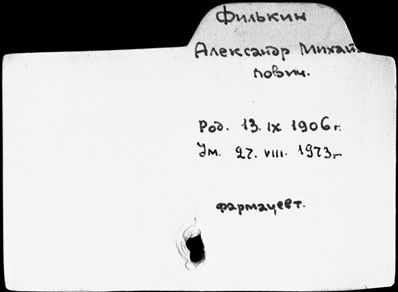 Филькин
Александр Михай-
лович.
Род. 13. IX 1906 г.
Ум. 27. VIII. 1973 г.
фармацевт.